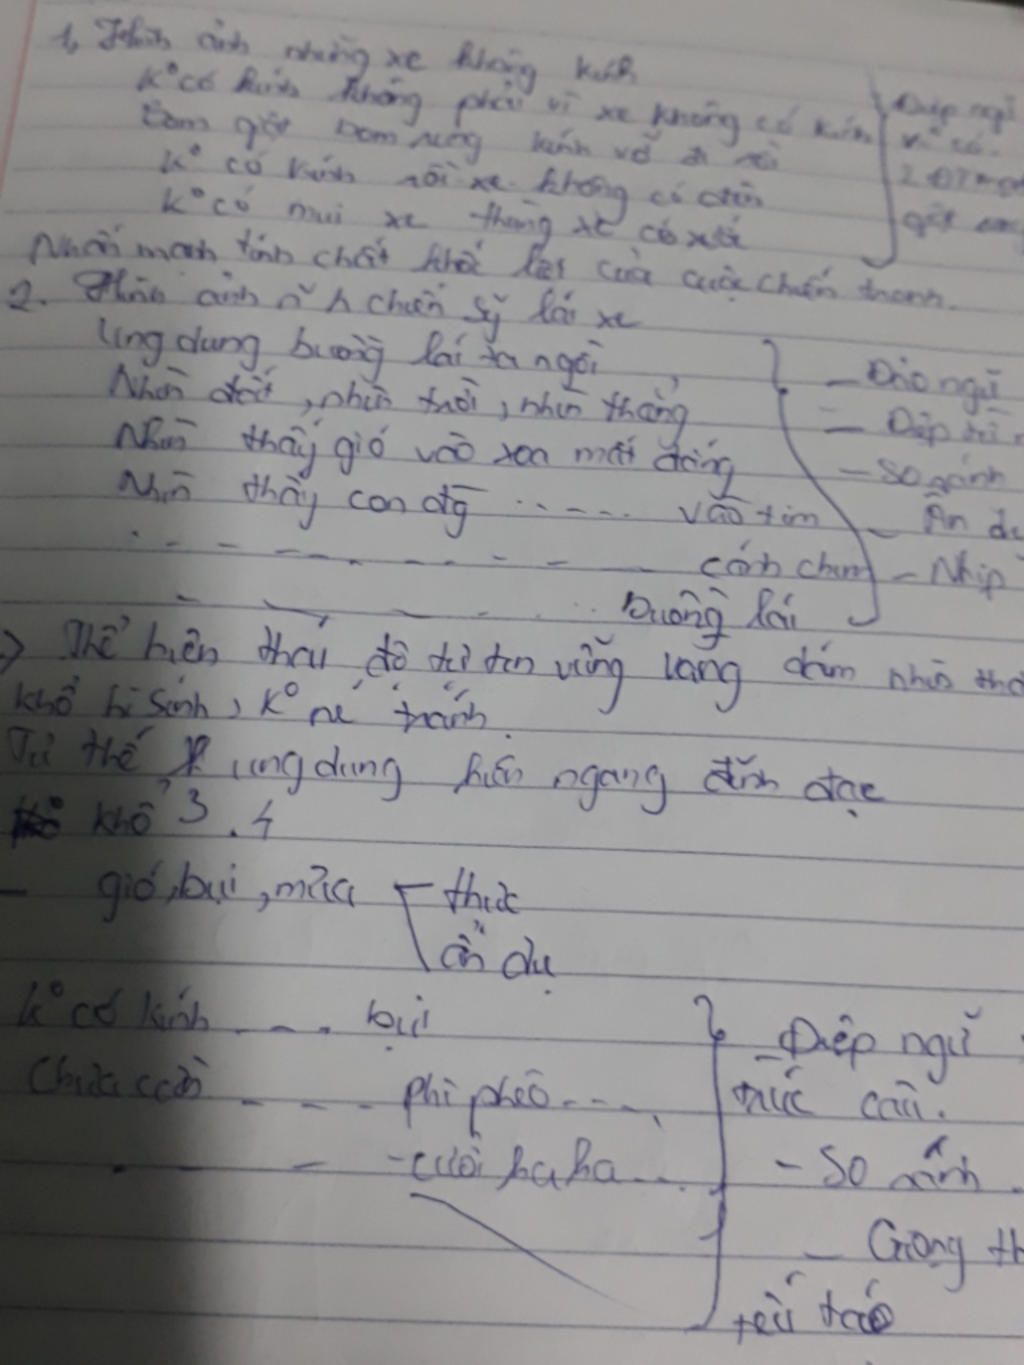 1, Hình ảnh những xe không kính
K° có kính không phải vì xe không có kính
Bom giật bom rung kính vỡ đi rồi
K° có kính rồi xe không có đèn
K° có mui xe thùng xe có xước
Điệp ngữ
Nhấn mạnh tính chất khốc liệt của cuộc chiến tranh.
2. Hình ảnh n~ h chiến sỹ lái xe
Ung dung buồng lái ta ngồi
Nhìn đất, nhìn trời, nhìn thẳng
Nhìn thấy gió vào xoa mắt đắng
Nhìn thấy con đg ..... vào tim
cánh chim
Buồng lái
- Đảo ngữ
- Điệp từ
- So sánh
- Ẩn dụ
- Nhịp
Thể hiện thái độ tự tin vững vàng dám nhìn thẳng
khổ hi sinh, K° né tránh.
Tư thế ung dung hiên ngang đĩnh đạc
khổ 3.4
- gió, bụi, mưa - thực
ẩn dụ
K° có kính ... bụi
Chưa cần ---- phì phèo ....
--- - cười ha ha ...
- Điệp ngữ
trúc câu.
- So sánh.
- Giọng th
tếu táo